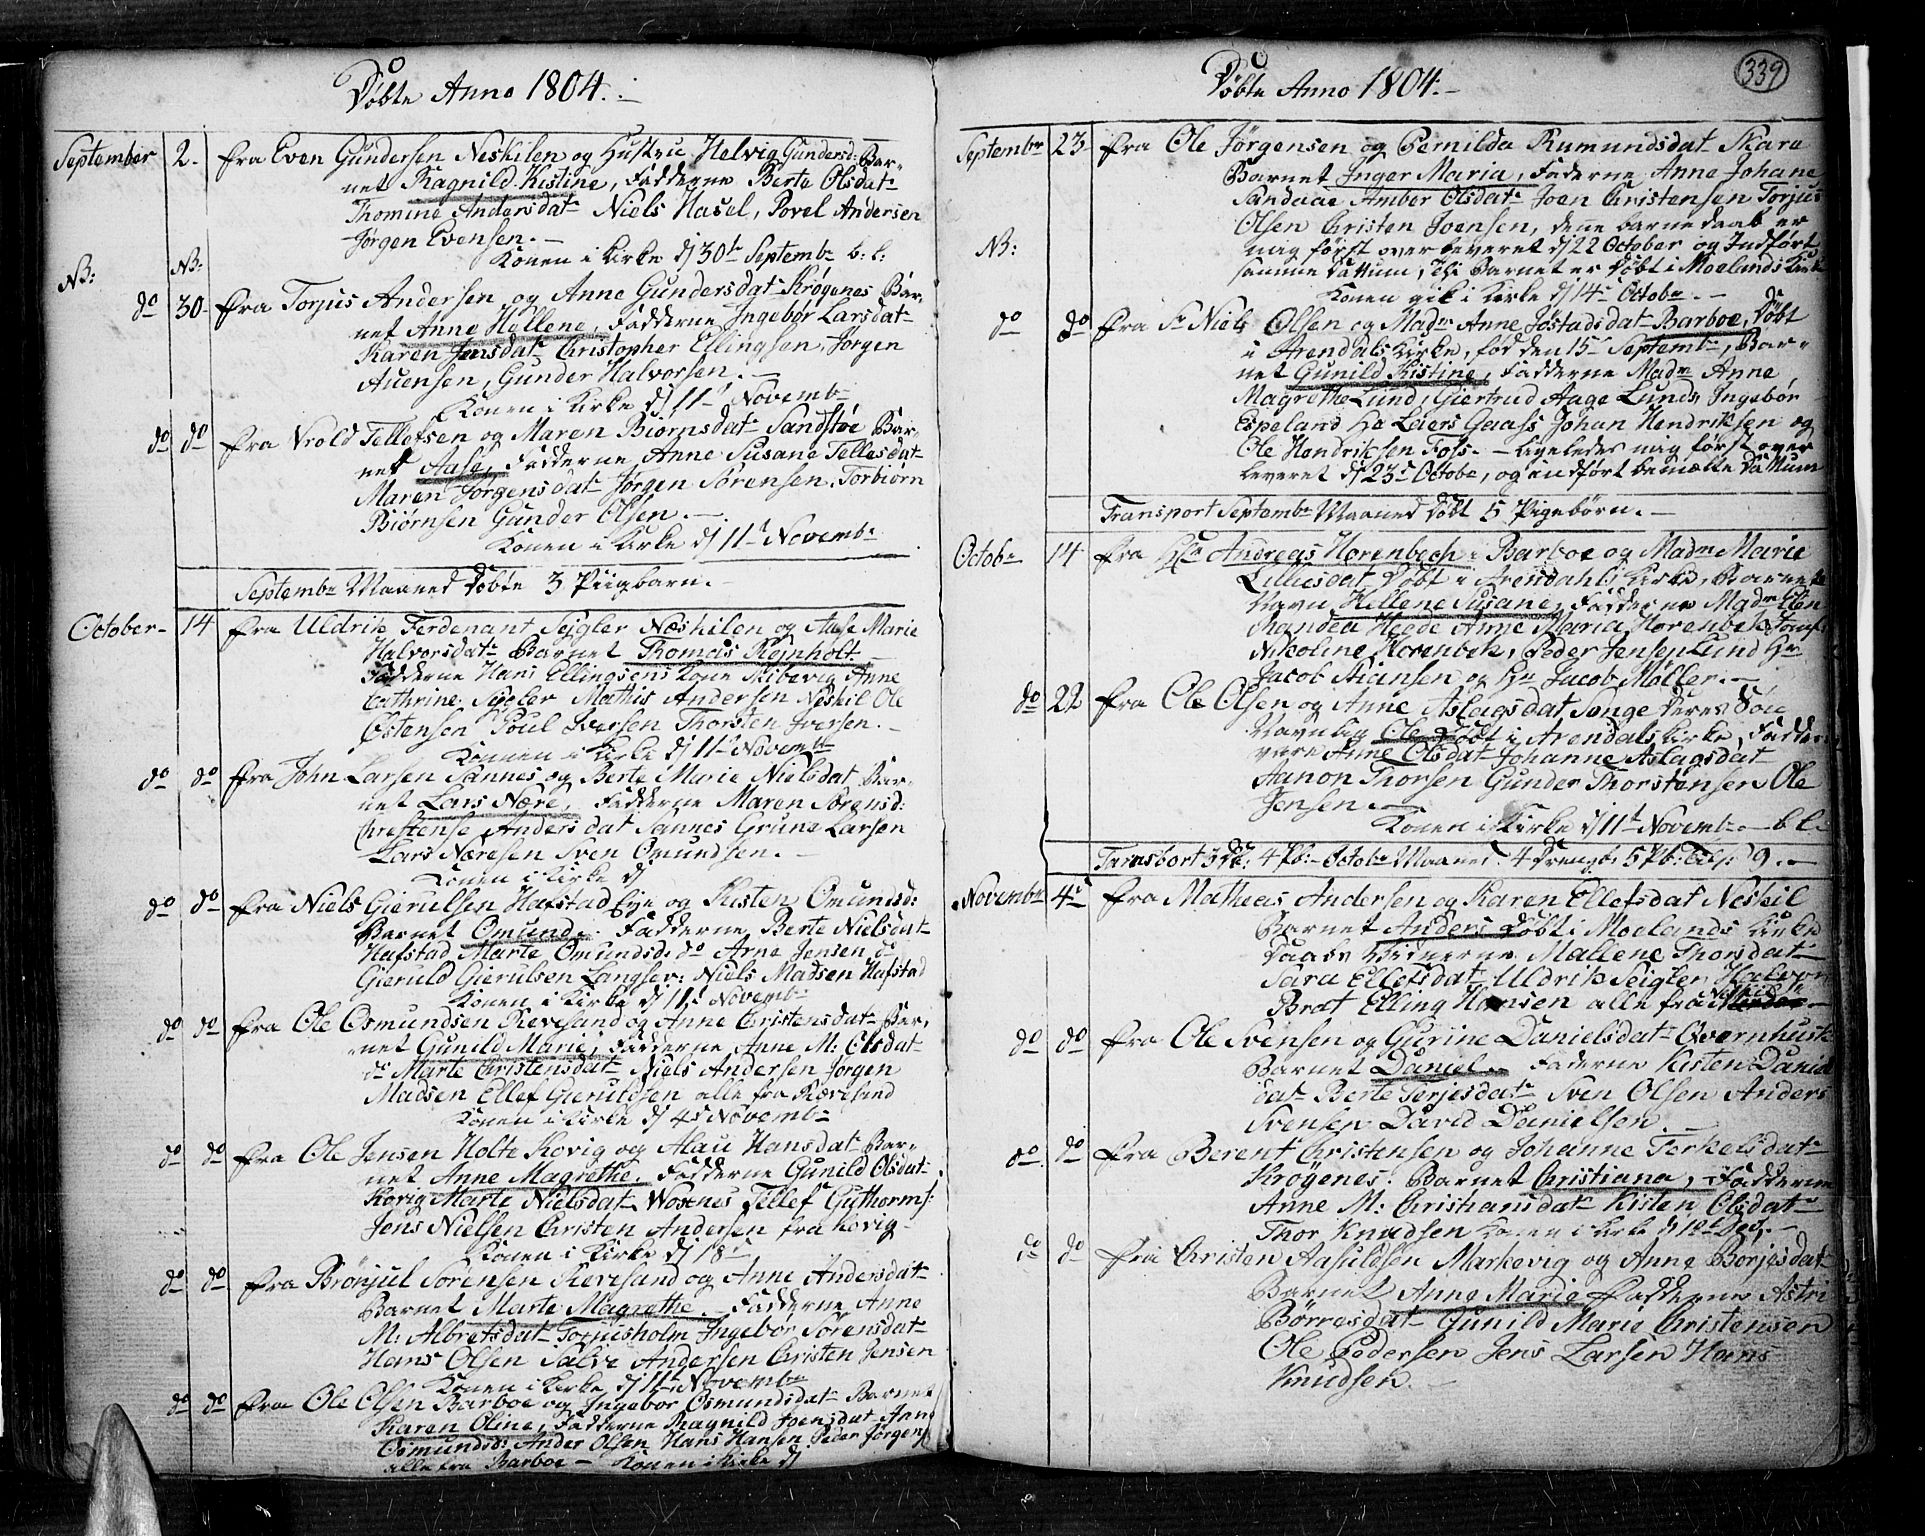 Döbte Anno 1804.
September 2. fra Even Gundersen Neskilen og Hustru Helvig Gundersd: Bar-
net Ragnild Kistine, Fadderne Berte Olsdatr
Thomine Andersdatr Niels Hasel, Povel Andersen
Jørgen Evensen.
Konen i Kirke dj 30te Septembr b: l:
NB: NB:
do 30 fra Torjus Andersen og Anne Gundersdatr Krögenes Bar-
net Anne Hellene, Fadderne Ingebør Larsdatr
Karen Jensdatr Christopher Ellingsen, Jörgen
Auensen, Gunder Halvorsen.
Konen i Kirke dj 11te Novembr
do do fra Vrold Tellefsen og Maren Biørnsdatr Sandstøe Bar-
net Aase, Fadderne Anne Susane Tellesdatr
Maren Jørgensdatr Jørgen Sørensen, Torbiørn
Biørnsen Gunder Olsen.
Konen i Kirke dj 11te Novembr
Septembr Maaned Döbte 3 Piigbarn.
October 14 fra Uldrik Ferdenant Sejgler Næskilen og Aase Marie
Halvorsdatr Barnet Thomas Rejnholt
Fadderne Hans Ellingsens Kone Skibevig Anne
Cathrine Sejgler Mathis Andersen Neskil Ole
Østensen Poul Iversen Thorsten Iversen.
Konen i Kirke dj 11te Novembr
do do fra John Larsen Sannes og Berte Marie Nielsdat Bar-
net Lars Nære, Fadderne Maren Sørensd:
Chrestense Andersdat Sannes Grune Larsen
Lars Næresen Sven Omundsen.
Konen i Kirke dj
do do fra Niels Gierulsen Hafstad Eye og Kisten Omundsd:
Barnet Omund. Fadderne Berte Nielsdat
Hafstad Marte Omundsd: do Arne Jensen do
Gieruld Gierulsen Langsev: Niels Madsen Hafstad
Konen i Kirke dj 11te Novembr
do do fra Ole Osmundsen Revesand og Anne Christensdatr Bar-
net Gunild Marie, Fadderne Anne M: Olsdatr
do Marte Christensdatr Niels Andersen Jørgen
Madsen Ellef Gieruldsen alle fra Rævesand
Konen i Kirke dj 4de Novembr
do do fra Ole Jensen Holte Kovig og Alau Hansdatr Bar-
net Anne Magrethe. Fadderne Gunild Olsdatr
Kovig Marte Nielsdatr Woxnes Tellef Guthorms:
Jens Nielsen Christen Andersen fra Kovig
Konen i Kirke dj 18
do do fra Brønjul Sørensen Revesand og Anne Andersdatr
Barnet Marte Magrethe. Fadderne Anne
M: Albretsdatr Torjusholm Ingebør Sørensdatr
Hans Olsen Salve Andersen Christen Jensen
Konen i Kirke dj 11te Novembr
do do fra Ole Olsen Barboe og Ingebor Osmundsdatr Barnet
Karen Oline, Fadderne Ragnild Joensdat Anne
Osmundsd: Ander Olsen Hans Hansen Peder Jörgens
alle fra Barboe – Konen i Kirke dj
339
Döbte Anno 1804.
Septembr 23 fra Ole Jørgensen og Pernilda Rumundsdat Skare
Barnet Inger Maria, Faderne Anne Johane
Sandaae Amber Olsdatr Joen Christensen Torjus
Olsen Christen Joensen, denne barnedaab er
NB: mig först overleveret dj 22 October og Indfört
samme Dattum, Thi Barnet er Döbt i Moelands Kirke
Konen gik i Kirke dj 14de Octobr
do do fra Sr Niels Olsen og Madm Anne Jøstadsdat Barboe, Döbt
i Arendals Kirke, fød den 15de Septembr, Bar-
net Gunild Kistine, Fadderne Madm Anne
Magrethe Lund, Giertrud Aage Lunds Ingebør
Espeland Hr Laers Gaass Johan Hendriksen og
Ole Hendriksen Foss. – Ligeledes mig först over
leveret dj 23de Octobe, og indfört bemælte Dattum
Transport Septembr Maaned Döbt 5 Pigebörn.
Octobr 14 fra Hr Andreas Hørenbech i Barboe og Madm Marie
Lilliesdat Döbt i Arendahls Kirke, Barnets
Navn Hellene Susane, Fadderne Madm Elen
Mandea Heede Anne Maria Hørenbek Jomf:
Nikoline Hørenbek, Peder Jensen Lund Hr
Jacob Kiensen og Hr Jacob Møller.
do 22 fra Ole Olsen og Anne Aslagsdat Songe Deres Søn
Navnlig Ole döbt i Arendals Kirke, Fadder
vare Anne Olsdat Johanne Aslagsdat
Aanon Thorsen Gunder Thorstensen Ole
Jensen.
Konen i Kirke dj 11te Novembr b l.
Transport 3 D: 4 Pb: Octobr Maaned 4 Drengb: 5 Pb: Tils: 9.
Novembr 4de fra Matheas Andersen og Karen Ellefsdat Neskil
Barnet Anders Döbt i Moelands Kirke
Daabs Widnerne Mallene Thorsdatr
Sara Ellefsdatr Uldrik Seigler Halvor
Brat Elling Hansen alle fra Neskile
do do fra Ole Svensen og Gurine Danielsdatr Qvernhusk
Barnet Daniel. Faderne Kisten Daniel
datr Berte Terjesdatr Sven Olsen Anders
Svensen David Danielsen.
do do fra Berent Christensen og Johanne Terkelsdatr
Krögenes. Barnet Christiana, Fadderne
Anne M: Christiansdatr Kisten Olsdatr
Thor Knudsen Konen i Kirke
do do fra Christen Aasuldsen Markevig og Anne Borjesdatr
Barnet Anne Marie Fadderne Astri
Börresdatr Gunild Marie Christensen
Ole Pedersen Jens Larsen Hans
Knudsen.